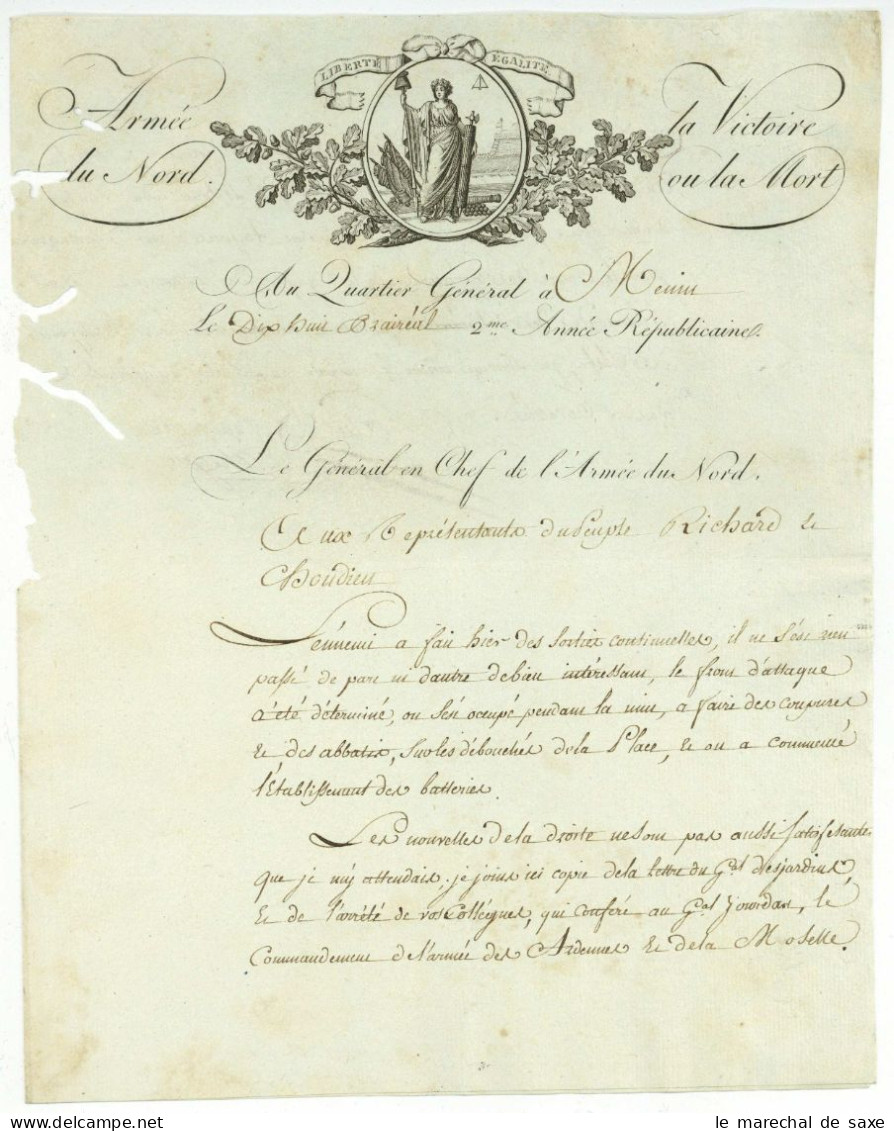 LIBERTÉ ÉGALITÉ
Armée la Victoire
du Nord. ou la Mort
Au Quartier Général à Menin
Le Dix huit Prairéal 2me. Année Républicaine.
Le Général en Chef de l'Armée du Nord.
Aux Représentants du Peuple Richard et
Choudieu
L'énnemi a fait hier des sorties continuelles, il ne s'est rien
passé de part ni d'autre de bien intéressant, le front d'attaque
a été déterminé, on s'est occupé pendant la nuit, a faire des coupures
et des abbatis, sur les débouchés de la Place, et on a commencé
l'Etablissement des batteries.
Les nouvelles de la droite ne sont pas aussi satisfesantes
que je m'y attendais, je joins ici copie de la lettre du Gal Desjardins,
et de l'arrêté de vos Collégues, qui conferé au Gal Jourdan, le
Commandement de l'armée des Ardennes et de la Moselle.
le marechal de saxe